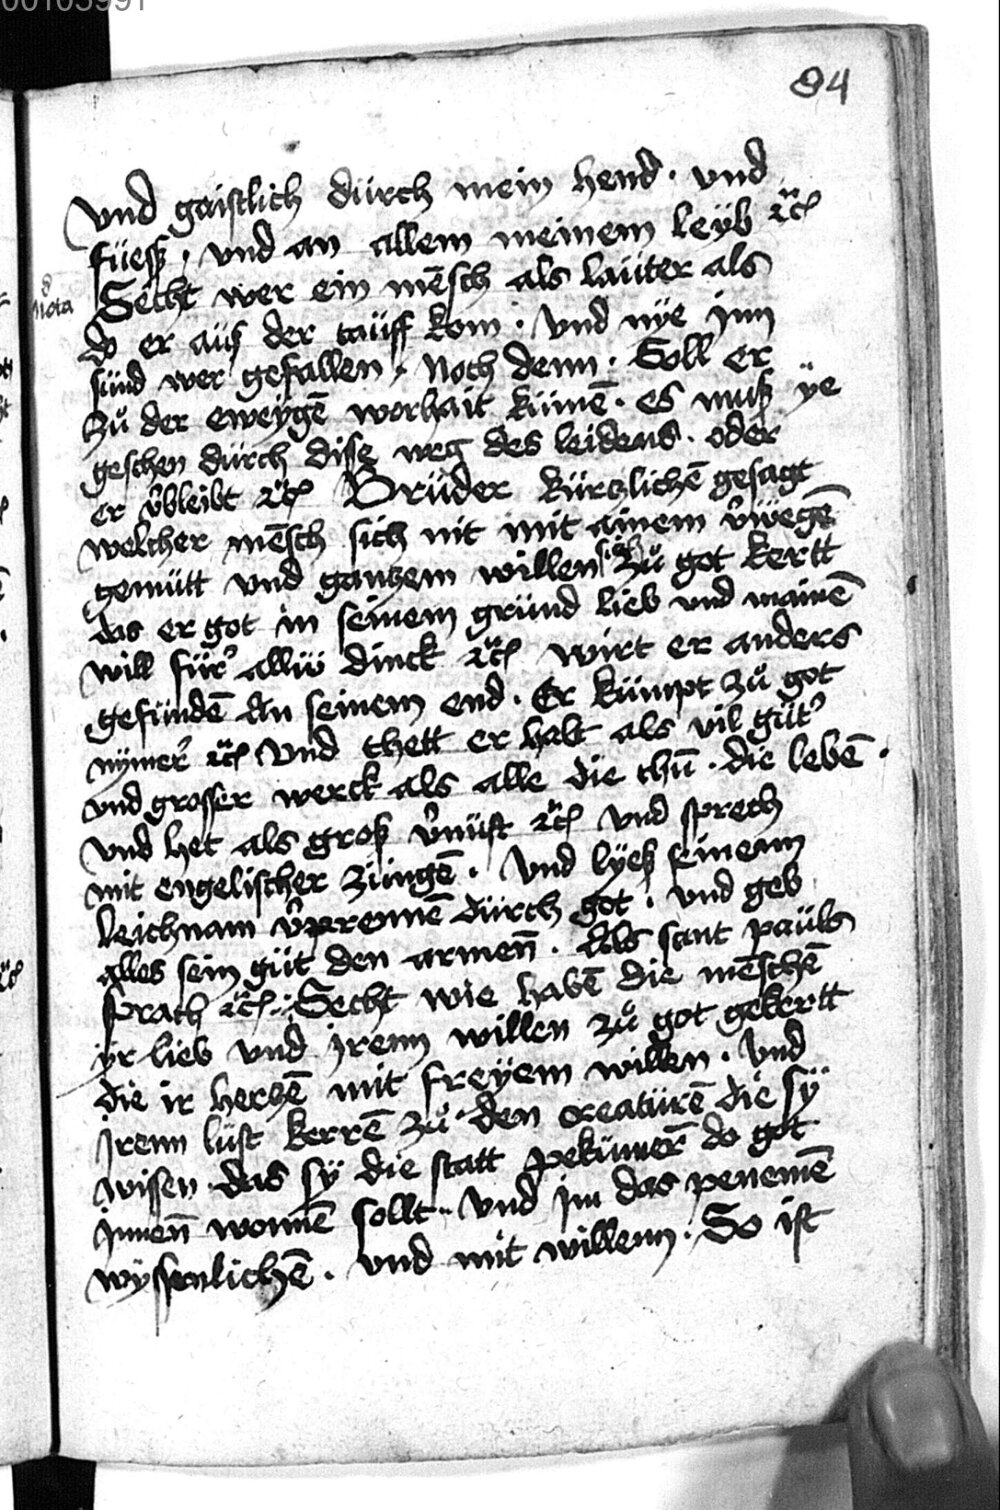 00103991
84
vnd gaistlich dürch mein hend · vnd
füesß · vnd an allem meinem leÿb ꝛc̈
Nota
Secht wer ein mēsch als laüter als
do er aüß der taüff kom · vnd nÿe jnn
sünd wer gefallen · Noch denn · Soll er
zů der eweÿgē worhait kümē · es muß ÿe
geschen dürch disse weg des leidens · oder
er v̉bleibt ꝛc̈ Brüder kürtzlichē gesagt
welcher mēsch sich nit mit ainem v̉wegē
gemütt vnd gantzem willen sich zů got kertt
das er got in seinem gründ lieb vnd mainē
will für̉ allü dinck ꝛc̈ wirt er anders
gefündē An seinem end · Er kümpt zů got
nÿmer̉ ꝛc̈ Vnd thett er halt als vil güt̉
vnd grosser werck als alle die thū · die lebē ·
Vnd het als groß v̉nüft ꝛc̈ vnd sprech
mit engelischer züngē · Vnd lÿeß seinenn
leichnam v̉prennē dürch got · vnd geb
alles sein güt den armen̄ · Als sant paüls
sprach ꝛc̈ · Secht wie habē die mēschē
ÿr lieb vnd jrenn willen zů got gekertt
die ir hertzē mit freÿem willen · Vnd
jrenn lüst kerrē zů den creatürē die sÿ
wissen das sÿ die statt pekümer̄ do got
jnnen̄ wonnē sollt · Vnd jm das penemē
wÿssenlichē · vnd mit willenn · So ist